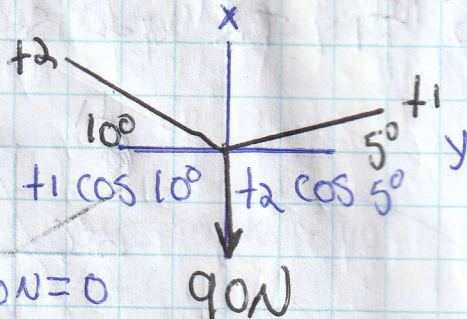 x
t2
t1
10° 5° y
t1 cos 10° t2 cos 5°
0N=0 90N